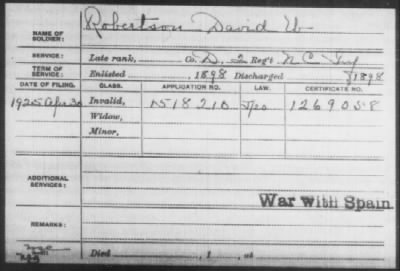 NAME OF SOLDIER: Robertson David W
SERVICE: Late rank, Co. D, 2 Reg't N C Inf
TERM OF SERVICE: Enlisted , 1898 Discharged , 1898
DATE OF FILING. CLASS. APPLICATION NO. LAW. CERTIFICATE NO.
1925 Apr 30 Invalid, 1518210 1269058
Widow,
Minor,
ADDITIONAL SERVICES:
War with Spain
REMARKS:
Died , 1 , at